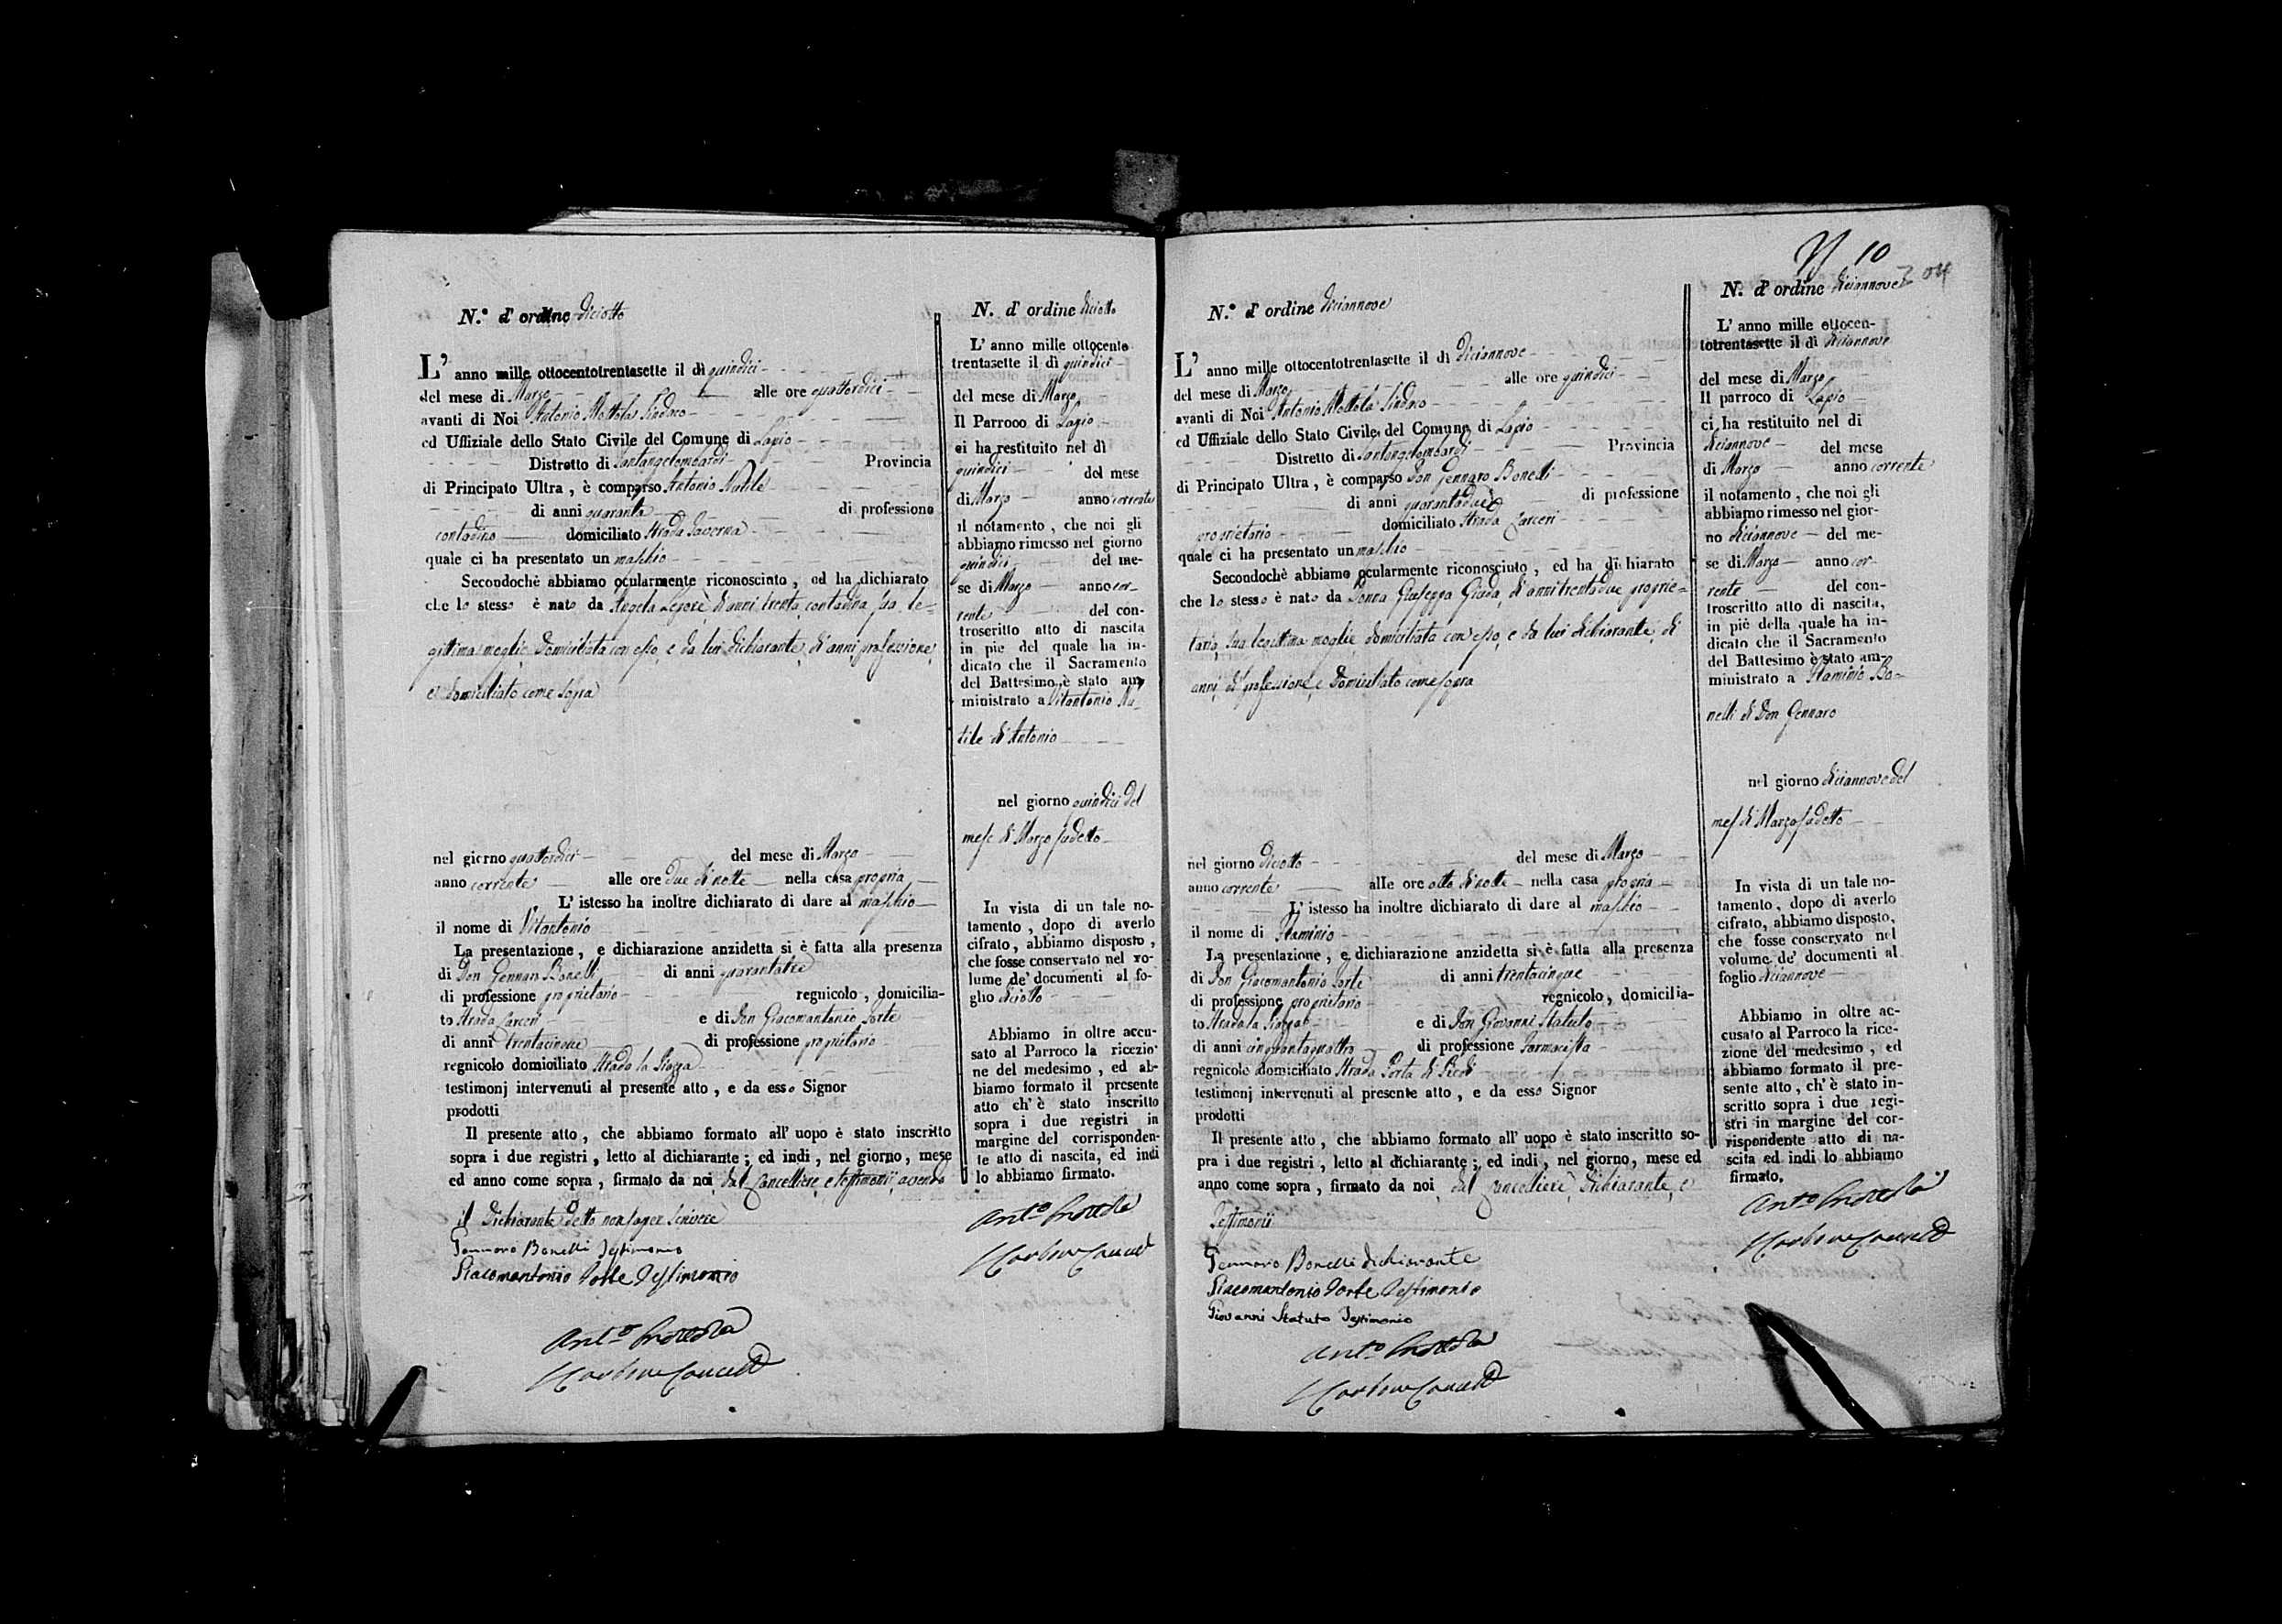 N.° d' ordine diciotto
L' anno mille ottocentotrentasette il dì quindici
del mese di Marzo alle ore quattordici
avanti di Noi Antonio Mottola Sindaco
ed Uffiziale dello Stato Civile del Comune di Lapio
Distretto di Santangelombardi Provincia
di Principato Ultra, è comparso Antonio Natile
di anni quaranta di professione
contadino domiciliato Strada Taverna
quale ci ha presentato un maschio
Secondochè abbiamo ocularmente riconosciuto, ed ha dichiarato
che lo stesso è nato da Angela di anni trenta contadina sua le-
gittima moglie domiciliata con esso, e da lui dichiarante, di anni, professione,
e domiciliato come sopra
nel giorno quattordici del mese di Marzo
anno corrente alle ore due di notte nella casa propria
L' istesso ha inoltre dichiarato di dare al maschio
il nome di Vitantonio
La presentazione, e dichiarazione anzidetta si è fatta alla presenza
di Don Gennaro Bonelli di anni quarantatre
di professione proprietario regnicolo, domicilia-
to Strada Carceri e di Don Giacomantonio Forte
di anni trentacinque di professione proprietario
regnicolo domiciliato Strada la Piazza
testimonj intervenuti al presente atto, e da esso Signor
prodotti
Il presente atto, che abbiamo formato all' uopo è stato inscritto
sopra i due registri, letto al dichiarante; ed indi, nel giorno, mese
ed anno come sopra, firmato da noi, dal Cancelliere, e testimonii, avendo
il Dichiarante detto non saper scrivere
Gennaro Bonelli Testimonio
Giacomantonio Forte Testimonio
Ant.o Mottola
N. d' ordine diciotto
L' anno mille ottocento
trentasette il dì quindici
del mese di Marzo
Il Parroco di Lapio
ci ha restituito nel dì
quindici del mese
di Marzo anno corrente
il notamento, che noi gli
abbiamo rimesso nel giorno
quindici del me-
se di Marzo anno cor-
rente del con-
troscritto atto di nascita
in piè del quale ha in-
dicato che il Sacramento
del Battesimo è stato am-
ministrato a Vitantonio Na-
tile di Antonio
nel giorno quindici del
mese di Marzo sudetto
In vista di un tale no-
tamento, dopo di averlo
cifrato, abbiamo disposto,
che fosse conservato nel vo-
lume de' documenti al fo-
glio diciotto
Abbiamo in oltre accu-
sato al Parroco la ricezio-
ne del medesimo, ed ab-
biamo formato il presente
atto ch' è stato inscritto
sopra i due registri in
margine del corrisponden-
te atto di nascita, ed indi
lo abbiamo firmato.
Ant.o Mottola
10
N.° d' ordine diciannove
L' anno mille ottocentotrentasette il dì diciannove
del mese di Marzo alle ore quindici
avanti di Noi Antonio Mottola Sindaco
ed Uffiziale dello Stato Civile del Comune di Lapio
Distretto di Santangelombardi Provincia
di Principato Ultra, è comparso Don Gennaro Bonelli
di anni quarantadue di professione
proprietario domiciliato Strada Carceri
quale ci ha presentato un maschio
Secondochè abbiamo ocularmente riconosciuto, ed ha dichiarato
che lo stesso è nato da Donna Giuseppa Giada, di anni trentadue proprie-
taria, sua legittima moglie domiciliata con esso, e da lui dichiarante di
anni, di professione, e domiciliato come sopra
nel giorno diciotto del mese di Marzo
anno corrente alle ore otto di notte nella casa propria
L' istesso ha inoltre dichiarato di dare al maschio
il nome di Flaminio
La presentazione, e dichiarazione anzidetta si è fatta alla presenza
di Don Giacomantonio Forte di anni trentacinque
di professione proprietario regnicolo, domicilia-
to Strada la Piazza e di Don Giovanni Statuto
di anni cinquantaquattro di professione Farmacista
regnicolo domiciliato Strada Porta di
testimonj intervenuti al presente atto, e da esso Signor
prodotti
Il presente atto, che abbiamo formato all' uopo è stato inscritto so-
pra i due registri, letto al dichiarante; ed indi, nel giorno, mese ed
anno come sopra, firmato da noi, dal Cancelliere, Dichiarante, e
Testimonii
Gennaro Bonelli dichiarante
Giacomantonio Forte Testimonio
Giovanni Statuto Testimonio
Ant.o Mottola
N. d' ordine diciannove
L' anno mille ottocen-
totrentasette il dì diciannove
del mese di Marzo
Il parroco di Lapio
ci ha restituito nel dì
diciannove del mese
di Marzo anno corrente
il notamento, che noi gli
abbiamo rimesso nel gior-
no diciannove del me-
se di Marzo anno cor-
rente del con-
troscritto atto di nascita,
in piè della quale ha in-
dicato che il Sacramento
del Battesimo è stato am-
ministrato a Flaminio Bo-
nelli di Don Gennaro
nel giorno diciannove del
mese di Marzo sudetto
In vista di un tale no-
tamento, dopo di averlo
cifrato, abbiamo disposto,
che fosse conservato nel
volume de' documenti al
foglio diciannove
Abbiamo in oltre ac-
cusato al Parroco la rice-
zione del medesimo, ed
abbiamo formato il pre-
sente atto, ch' è stato in-
scritto sopra i due regi-
stri in margine del cor-
rispondente atto di na-
scita ed indi lo abbiamo
firmato.
Ant.o Mottola